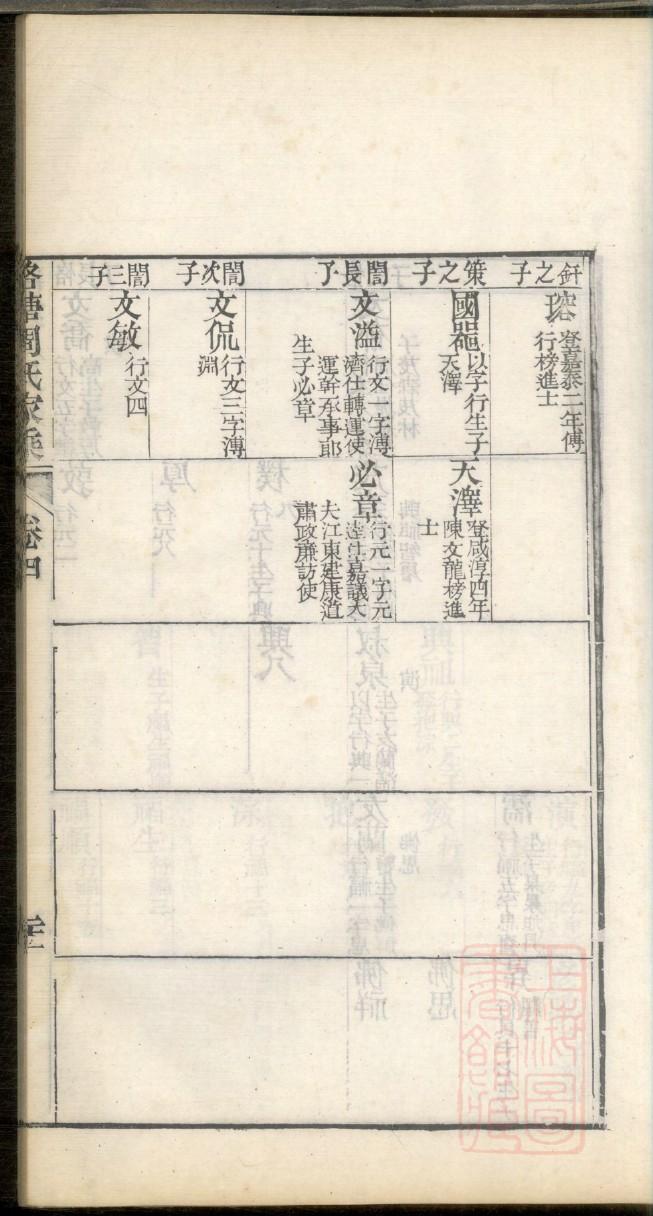 釬之子
瑹
登嘉泰二年傅
行榜進士
策之子
國器
以字行生子
天澤
天澤
登咸淳四年
陳文龍榜進
士
誾長子
文溢
行文二字溥
濟仕轉運使
運幹承事郎
生子必章
必章
行元一字元
達仕嘉議大
夫江東建康道
肅政廉訪使
誾次子
文侃
行文三字溥
淵
誾三子
文敏
行文四
周氏家乘
卷四